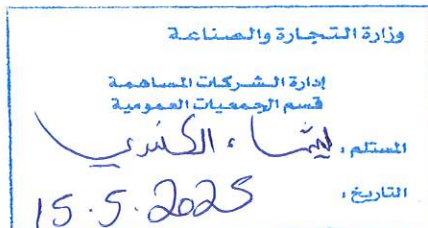 وزارة التجارة والصناعة
إدارة الشركات المساهمة
قسم الجمعيات العمومية
المستلم، الكندري
التاريخ، 15.5.2025